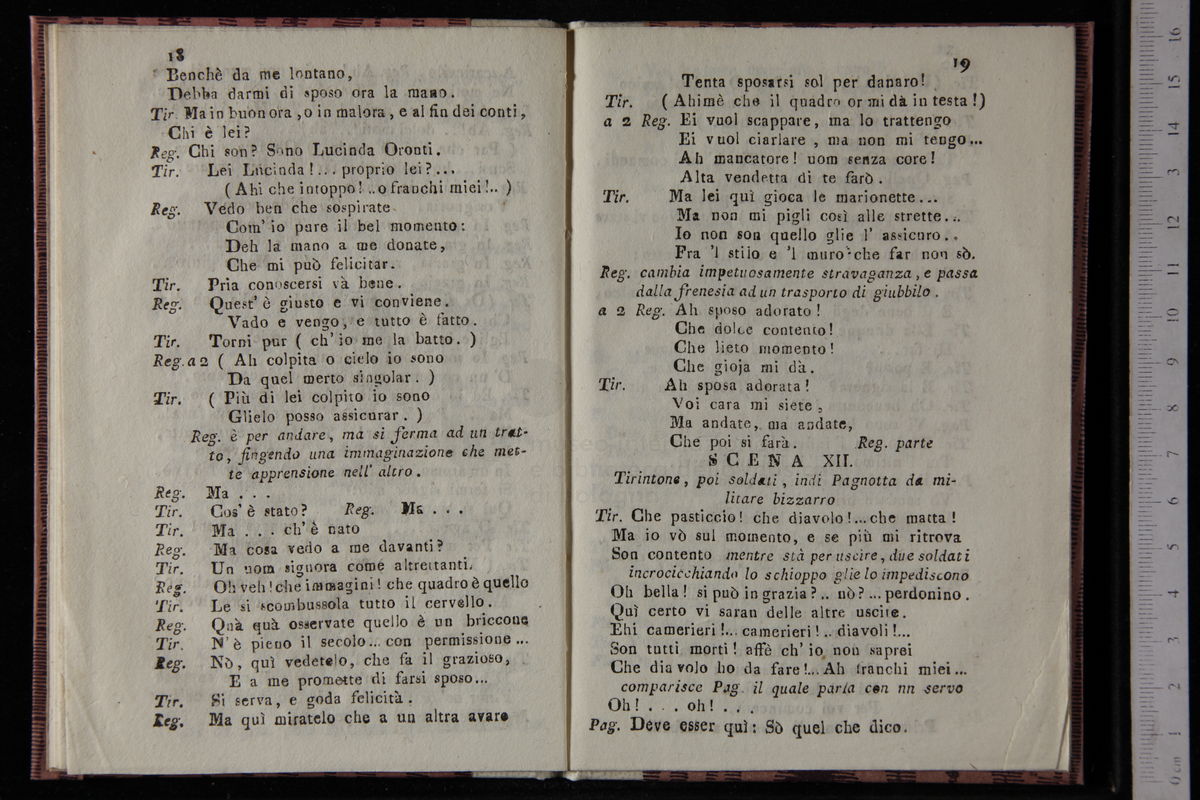 18
Benchè da me lontano,
Debba darmi di sposo ora la mano.
Tir. Ma in buon ora , o in malora , e al fin dei conti ,
Chi è lei?
Reg. Chi son? Sono Lucinda Oronti.
Tir. Lei Lucinda !... proprio lei ?...
( Ahi che intoppo! ..o franchi miei !.. )
Reg. Vedo ben che sospirate
Com' io pure il bel momento :
Deh la mano a me donate,
Che mi può felicitar.
Tir. Pria conoscersi và bene.
Reg. Quest' è giusto e vi conviene.
Vado e vengo, e tutto è fatto.
Tir. Torni pur ( ch' io me la batto. )
Reg. a 2 ( Ah colpita o cielo io sono
Da quel merto singolar. )
Tir. ( Più di lei colpito io sono
Glielo posso assicurar. )
Reg. è per andare, ma si ferma ad un trat-
to, fingendo una immaginazione che met-
te apprensione nell' altro.
Reg. Ma . . .
Tir. Cos' è stato? Reg. Ma . . .
Tir. Ma . . . ch' è nato
Reg. Ma cosa vedo a me davanti?
Tir. Un uom signora come altrettanti.
Reg. Oh veh ! che immagini ! che quadro è quello
Tir. Le si scombussola tutto il cervello.
Reg. Quà quà osservate quello è un briccone
Tir. N' è pieno il secolo... con permissione ...
Reg. Nò, quì vedetelo, che fa il grazioso,
E a me promette di farsi sposo...
Tir. Si serva, e goda felicità.
Reg. Ma quì miratelo che a un altra avara
19
Tenta sposarsi sol per danaro!
Tir. ( Ahimè che il quadro or mi dà in testa !)
a 2 Reg. Ei vuol scappare, ma lo trattengo
Ei vuol ciarlare , ma non mi tengo...
Ah mancatore! uom senza core!
Alta vendetta di te farò.
Tir. Ma lei quì gioca le marionette...
Ma non mi pigli così alle strette...
Io non son quello glie l' assicuro..
Fra 'l stilo e 'l muro che far non sò.
Reg. cambia impetuosamente stravaganza, e passa
dalla frenesia ad un trasporto di giubbilo.
a 2 Reg. Ah sposo adorato !
Che dolce contento!
Che lieto momento!
Che gioja mi dà.
Tir. Ah sposa adorata!
Voi cara mi siete,
Ma andate, ma andate,
Che poi si farà. Reg. parte
SCENA XII.
Tirintone, poi soldati, indi Pagnotta da mi-
litare bizzarro
Tir. Che pasticcio! che diavolo!...che matta!
Ma io vò sul momento, e se più mi ritrova
Son contento mentre stà per uscire, due soldati
incrocicchiando lo schioppo glie lo impediscono
Oh bella! si può in grazia ? .. nò ? ... perdonino.
Quì certo vi saran delle altre uscite.
Ehi camerieri !... camerieri ! .. diavoli !...
Son tutti morti ! affè ch' io non saprei
Che diavolo ho da fare !... Ah franchi miei...
comparisce Pag. il quale parla con nn servo
Oh! . . . oh! . . .
Pag. Deve esser quì: Sò quel che dico.